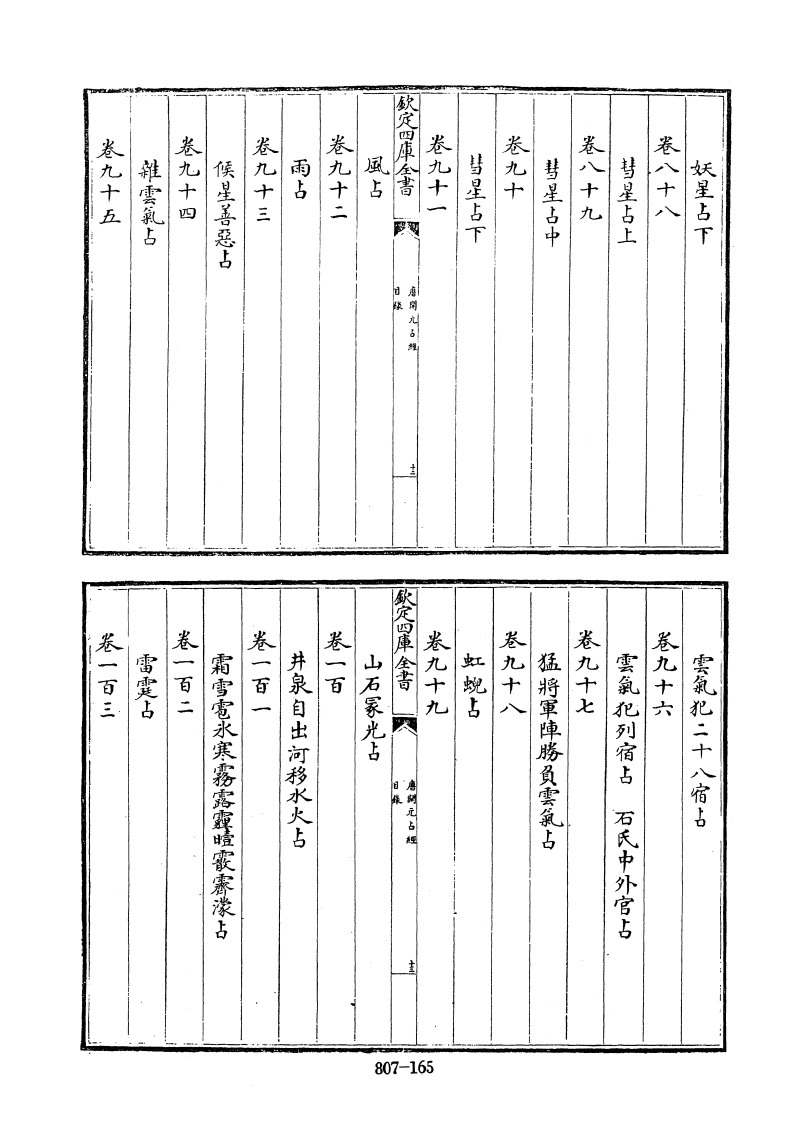 妖星占下
卷八十八
彗星占上
卷八十九
彗星占中
卷九十
彗星占下
卷九十一
欽定四庫全書
唐開元占經
目錄
十二
風占
卷九十二
雨占
卷九十三
候星善惡占
卷九十四
雜雲氣占
卷九十五
雲氣犯二十八宿占
卷九十六
雲氣犯列宿占 石氏中外官占
卷九十七
猛將軍陣勝負雲氣占
卷九十八
虹蜺占
卷九十九
欽定四庫全書
唐開元占經
目錄
十三
山石冢光占
卷一百
井泉自出河移水火占
卷一百一
霜雪雹氷寒霧露霾曀霰霽濛占
卷一百二
雷霆占
卷一百三
807-165